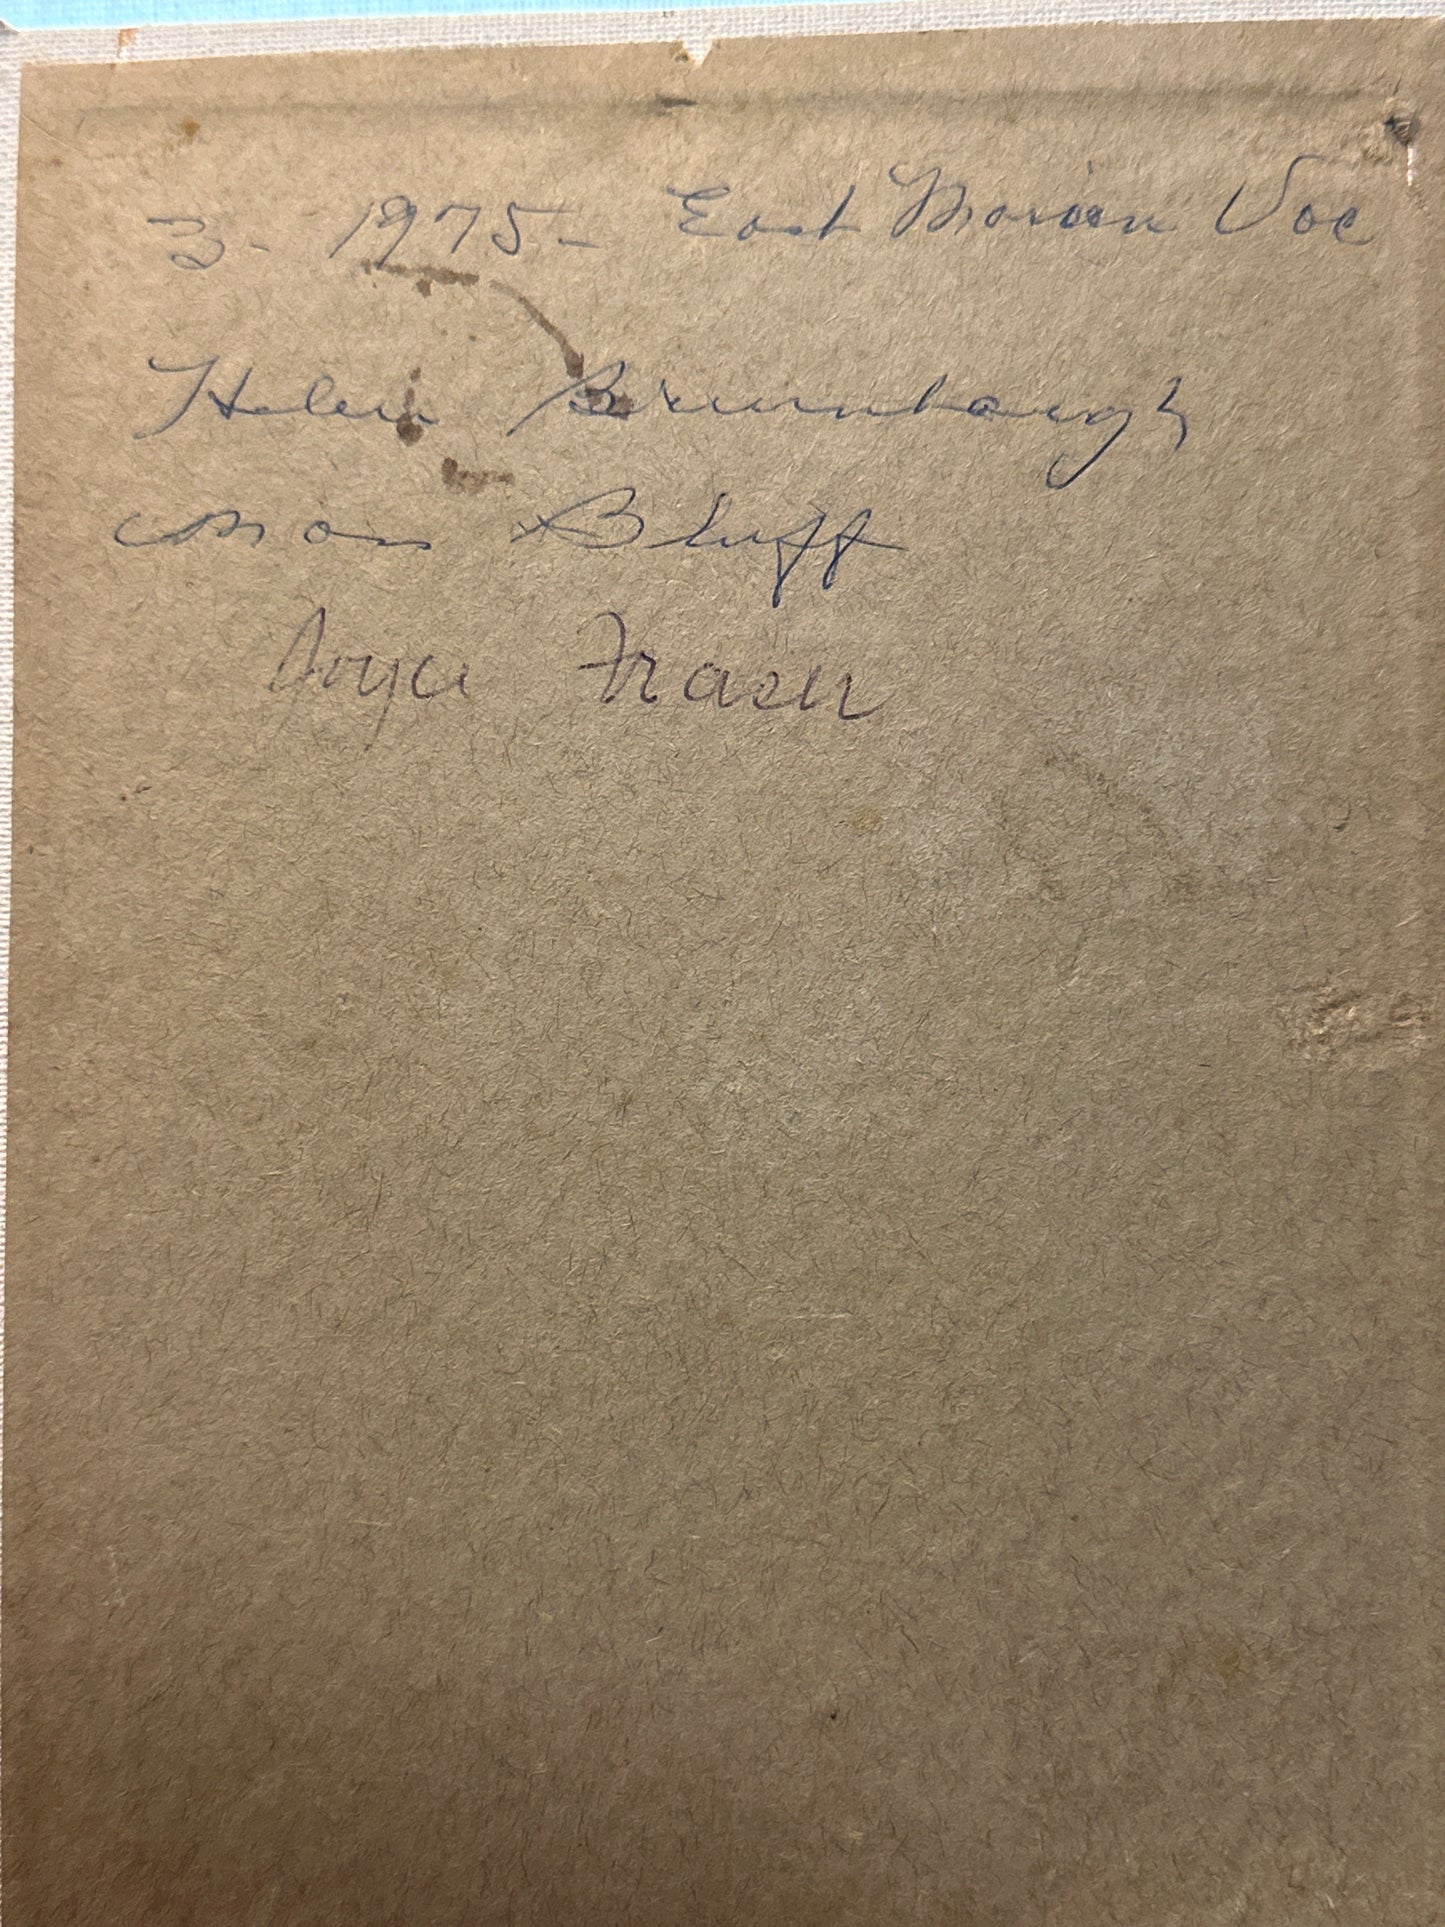 3- 1975- East Marion Voc
Helen Brumbaugh
Mos Bluff
Joyce Fraser